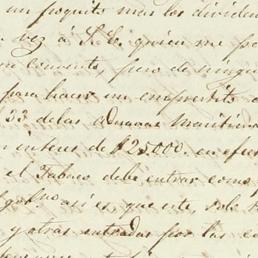 un poquito mas los dividen
vez á S. E. quien me
convento, pero de ningu
para hacer un emprestito
33 de las aduanas Maritimas
interes de $25.000. en efec
el Tabaco debe entrar como
así es que este solo
y otras entradas por las